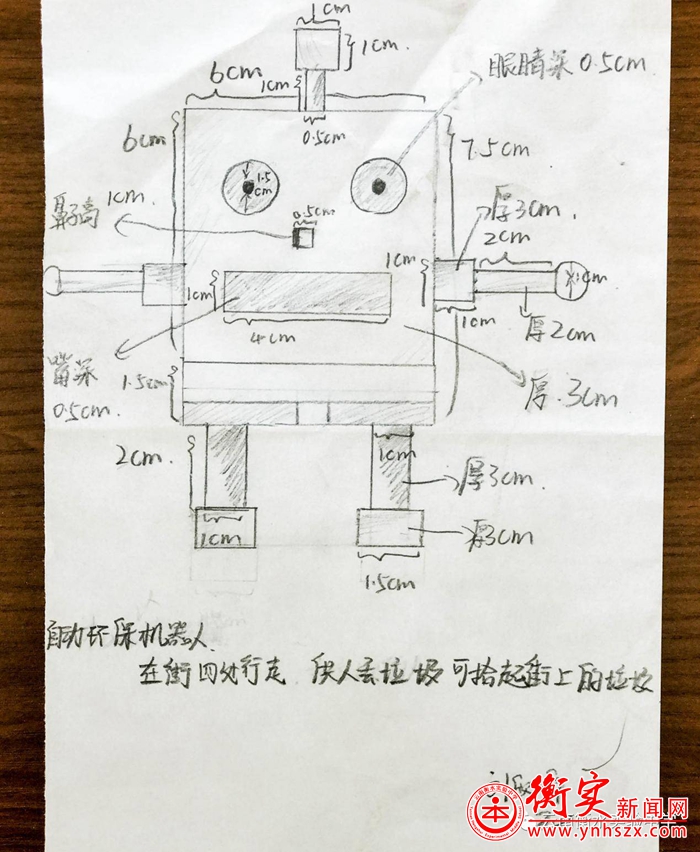 1cm
1cm.
6cm
1cm
眼睛深0.5cm
0.5cm
6cm
7.5cm
1.5
cm
鼻子高1cm.
0.5cm
厚3cm.
2cm
1cm
1cm
1cm
1cm
4cm
厚2cm
嘴深
0.5cm.
1.5cm
厚.3cm
2cm.
1cm
厚3cm.
1cm
厚3cm
1.5cm
自动环保机器人.
在街四处行走 供人丢垃圾 可拾起街上的垃圾
衡实新闻网
www.ynhszx.com